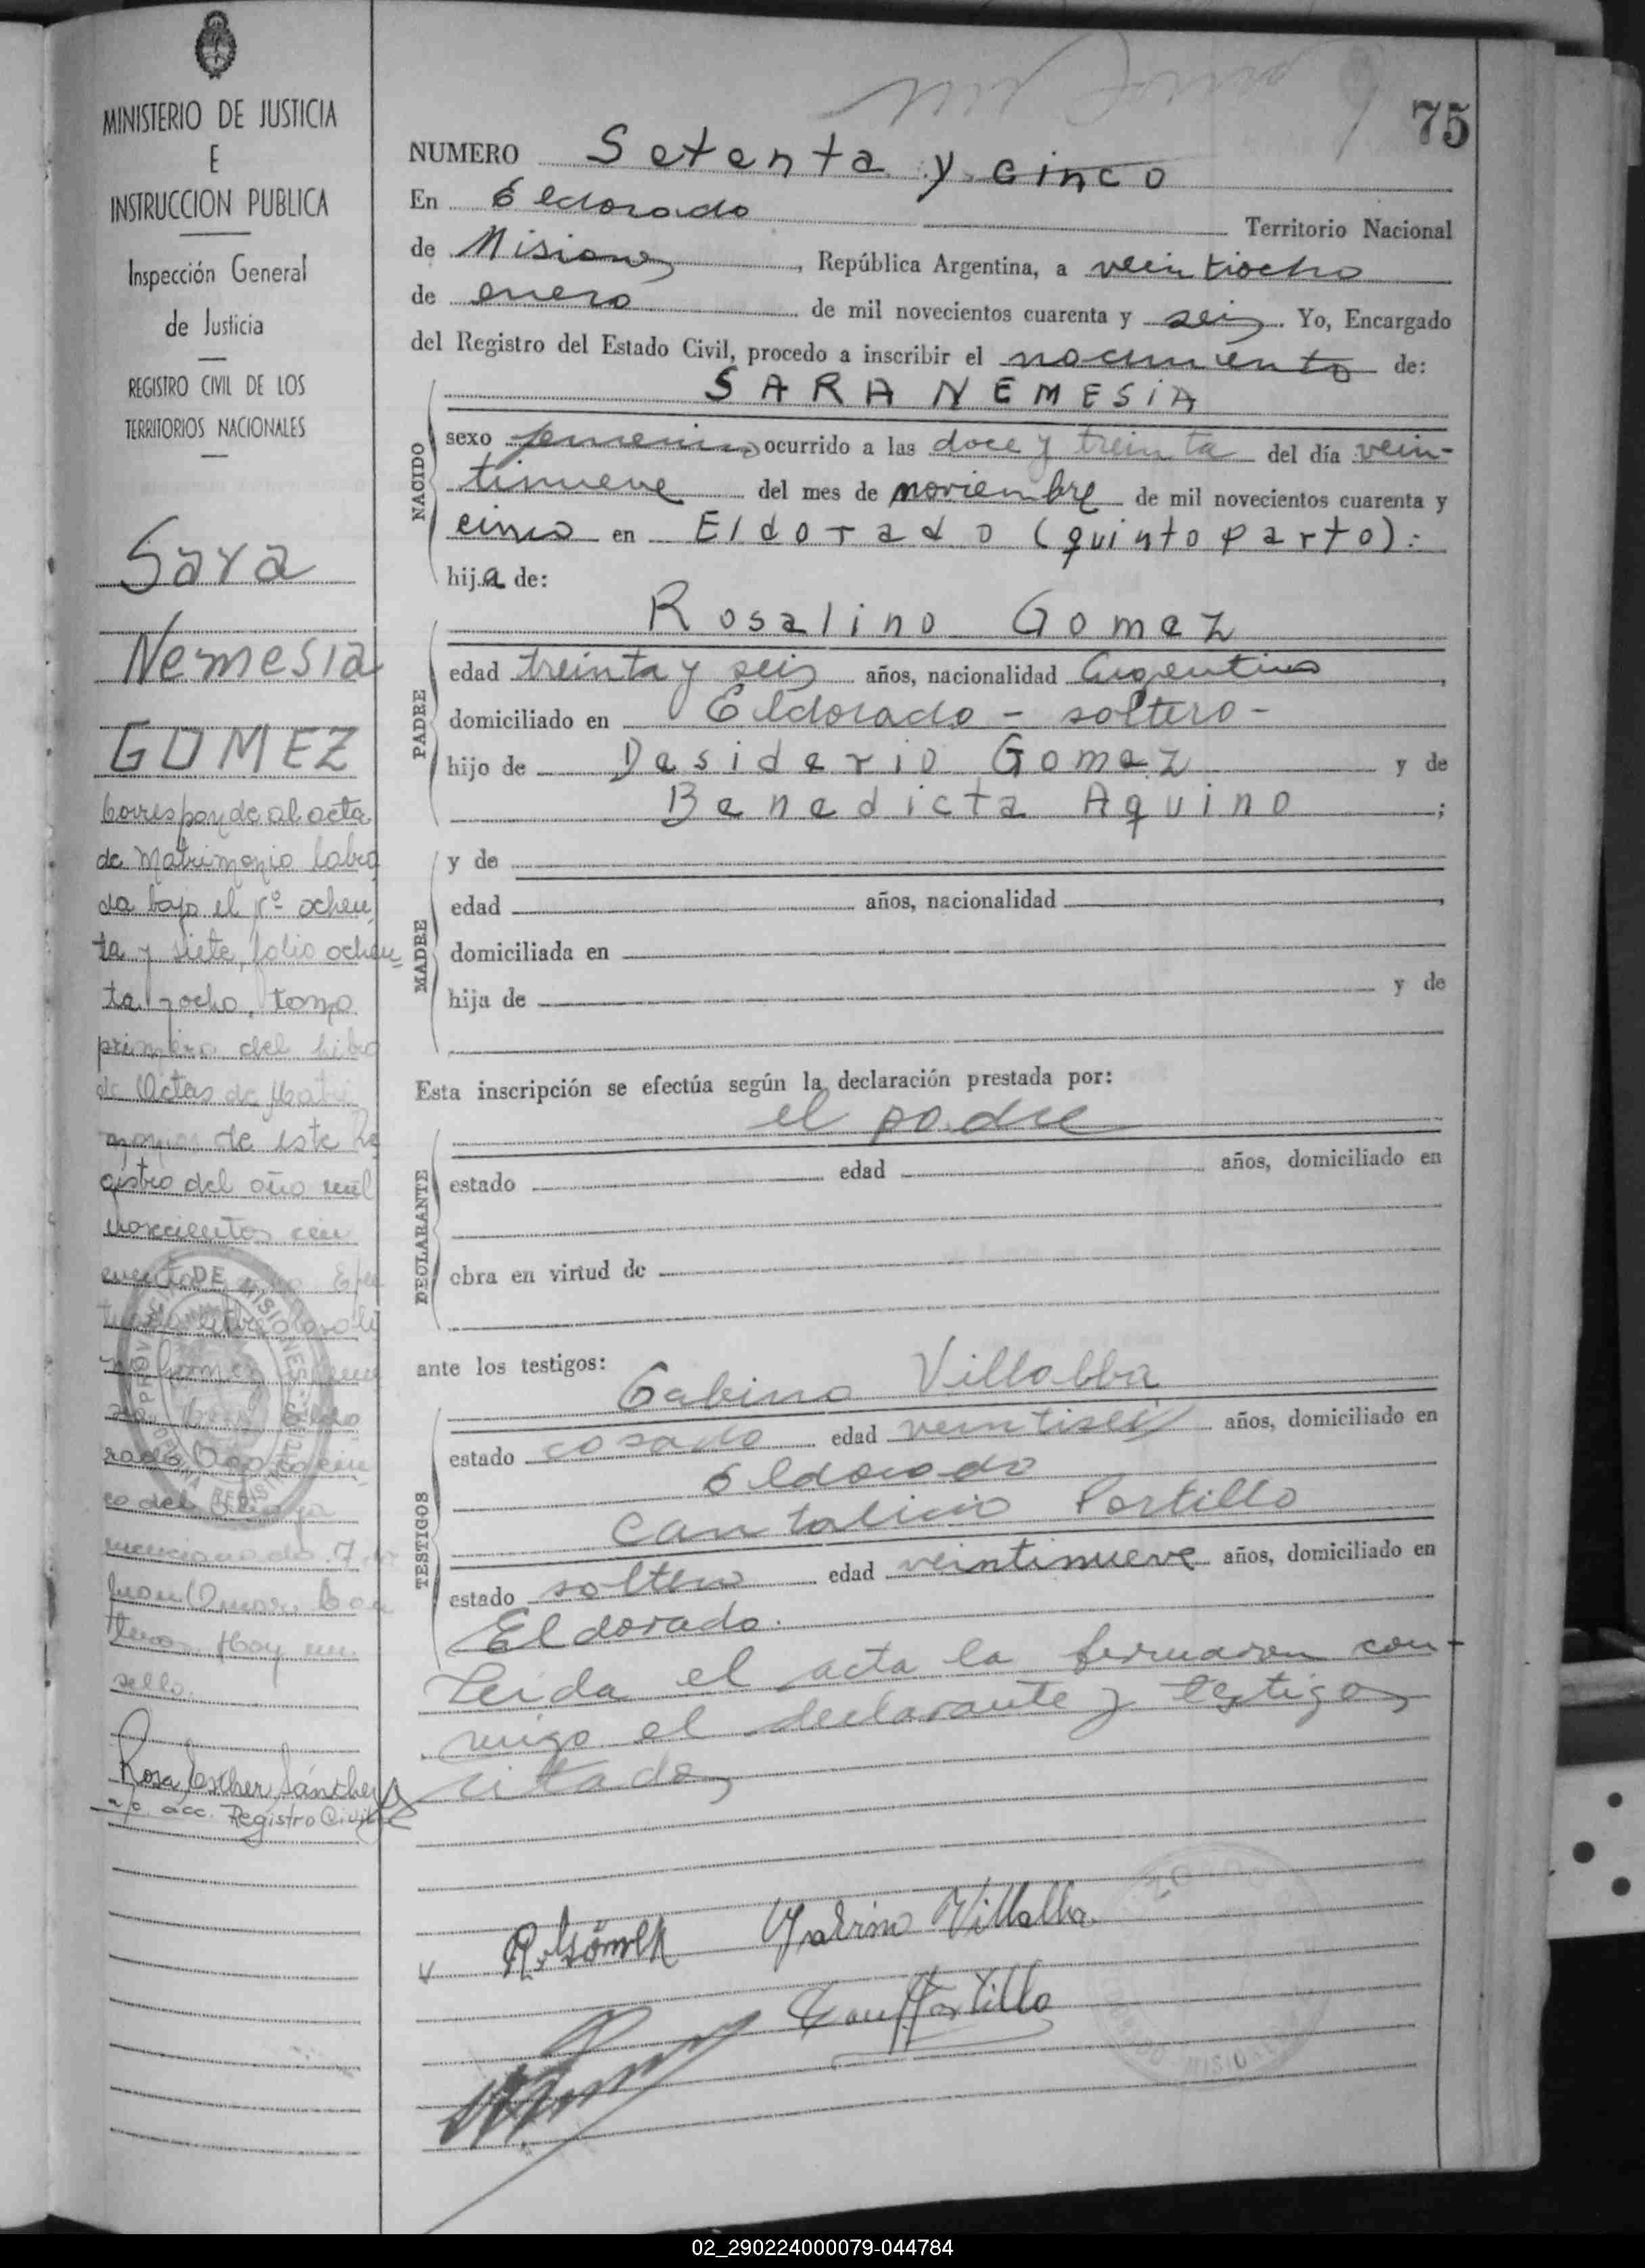 75
MINISTERIO DE JUSTICIA
E
INSTRUCCION PUBLICA
Inspección General
de Justicia
REGISTRO CIVIL DE LOS
TERRITORIOS NACIONALES
Sara
Nemesia
GOMEZ
Corresponde al acta
de Matrimonio labra
da bajo el Nº ochen
ta y siete, folio ochen
ta y ocho, tomo
primero del libro
de Actas de Matri
monios de este Re
gistro del año mil
novecientos cin
cuenta
rado
co del
mencionado.
Juan Omar
Hay un
sello.
Rosa Esther Sánchez
a/c. acc. Registro Civil
NUMERO Setenta y cinco
En Eldorado Territorio Nacional
de Misiones, República Argentina, a veintiocho
de enero de mil novecientos cuarenta y seis. Yo, Encargado
del Registro del Estado Civil, procedo a inscribir el nacimiento de:
SARA NEMESIA
NACIDO
sexo femenino ocurrido a las doce y treinta del día vein-
tinueve del mes de noviembre de mil novecientos cuarenta y
cinco en Eldorado (quinto parto):
hija de:
Rosalino Gomez
PADRE
edad treinta y seis años, nacionalidad Argentino
domiciliado en Eldorado - soltero-
hijo de Desiderio Gomez y de
Benedicta Aquino;
MADRE
y de
edad años, nacionalidad
domiciliada en
hija de y de
Esta inscripción se efectúa según la declaración prestada por:
el padre
DECLARANTE
estado edad años, domiciliado en
obra en virtud de
ante los testigos:
Gabino Villalba
TESTIGOS
estado casado edad veintiseis años, domiciliado en
Eldorado
Cantalicio Portillo
estado soltero edad veintinueve años, domiciliado en
Eldorado.
Leida el acta la firmaron con-
migo el declarante y testigos
citados
R. Gómez Gabino Villalba
Portillo
02_290224000079-044784